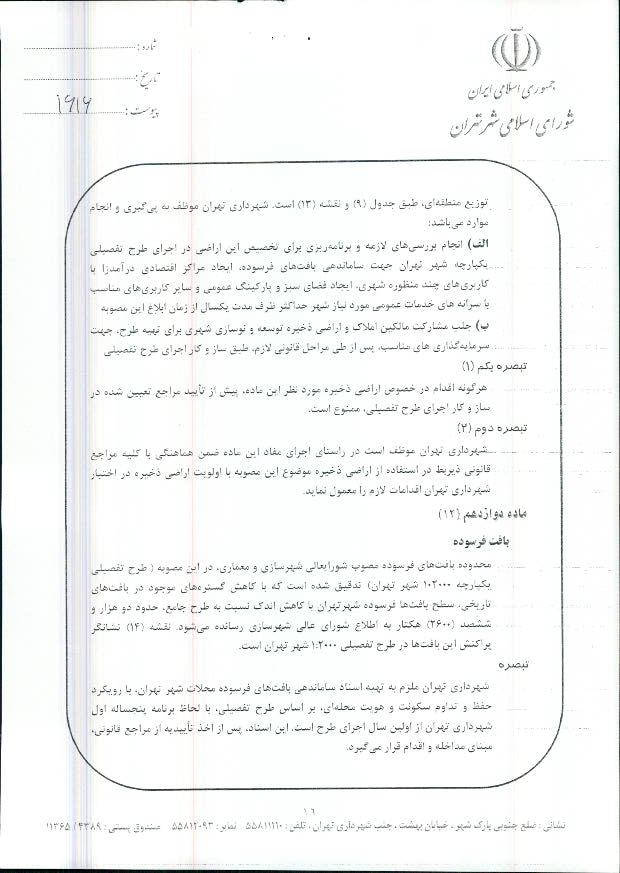 جمهوری اسلامی ایران
شورای اسلامی شهر تهران
شماره :
تاریخ :
پیوست :
توزیع منطقه‌ای، طبق جدول (۹) و نقشه (۱۳) است. شهرداری تهران موظف به پی‌گیری و انجام
موارد می‌باشد:
الف) انجام بررسی‌های لازمه و برنامه‌ریزی برای تخصیص این اراضی در اجرای طرح تفصیلی
یکپارچه شهر تهران جهت ساماندهی بافت‌های فرسوده، ایجاد مراکز اقتصادی درآمدزا با
کاربری‌های چند منظوره شهری، ایجاد فضای سبز و پارکینگ عمومی و سایر کاربری‌های مناسب
با سرانه های خدمات عمومی مورد نیاز شهر حداکثر ظرف مدت یکسال از زمان ابلاغ این مصوبه
ب) جلب مشارکت مالکین املاک و اراضی ذخیره توسعه و نوسازی شهری برای تهیه طرح، جهت
سرمایه‌گذاری های مناسب، پس از طی مراحل قانونی لازم، طبق ساز و کار اجرای طرح تفصیلی
تبصره یکم (۱)
هرگونه اقدام در خصوص اراضی ذخیره مورد نظر این ماده، پیش از تأیید مراجع تعیین شده در
ساز و کار اجرای طرح تفصیلی، ممنوع است.
تبصره دوم (۲)
شهرداری تهران موظف است در راستای اجرای مفاد این ماده ضمن هماهنگی با کلیه مراجع
قانونی ذیربط در استفاده از اراضی ذخیره موضوع این مصوبه با اولویت اراضی ذخیره در اختیار
شهرداری تهران اقدامات لازم را معمول نماید.
ماده دوازدهم (۱۲)
بافت فرسوده
محدوده بافت‌های فرسوده مصوب شورایعالی شهرسازی و معماری، در این مصوبه ( طرح تفصیلی
یکپارچه ۱:۲۰۰۰ شهر تهران) تدقیق شده است که با کاهش گستره‌های موجود در بافت‌های
تاریخی، سطح بافت‌ها فرسوده شهرتهران با کاهش اندک نسبت به طرح جامع، حدود دو هزار و
ششصد (۲۶۰۰) هکتار به اطلاع شورای عالی شهرسازی رسانده می‌شود. نقشه (۱۴) نشانگر
پراکنش این بافت‌ها در طرح تفصیلی ۱:۲۰۰۰ شهر تهران است.
تبصره
شهرداری تهران ملزم به تهیه اسناد ساماندهی بافت‌های فرسوده محلات شهر تهران، با رویکرد
حفظ و تداوم سکونت و هویت محله‌ای، بر اساس طرح تفصیلی، با لحاظ برنامه پنجساله اول
شهرداری تهران از اولین سال اجرای طرح است. این اسناد، پس از اخذ تأییدیه از مراجع قانونی،
مبنای مداخله و اقدام قرار می‌گیرد.
۱۶
نشانی : ضلع جنوبی پارک شهر ، خیابان بهشت ، جنب شهرداری تهران ، تلفن : ۵۵۸۱۱۱۱۰ نمابر : ۵۵۸۱۲۰۹۳ صندوق پستی : ۴۳۸۹ / ۱۱۳۶۵